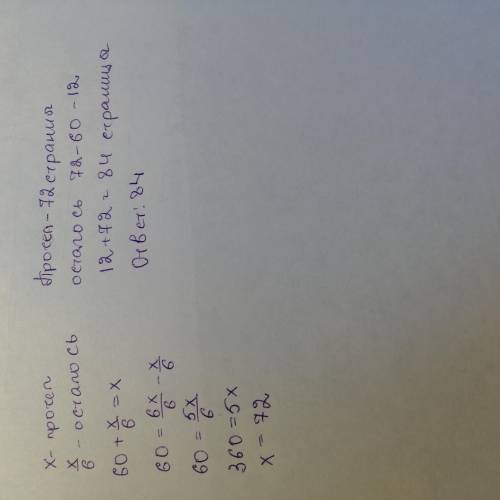 x - прочел
x/6 - осталось
60 + x/6 = x
60 = 6x/6 - x/6
60 = 5x/6
360 = 5x
x = 72
Прочел - 72 страницы
осталось 72 - 60 - 12
12 + 72 = 84 страница
Ответ: 84